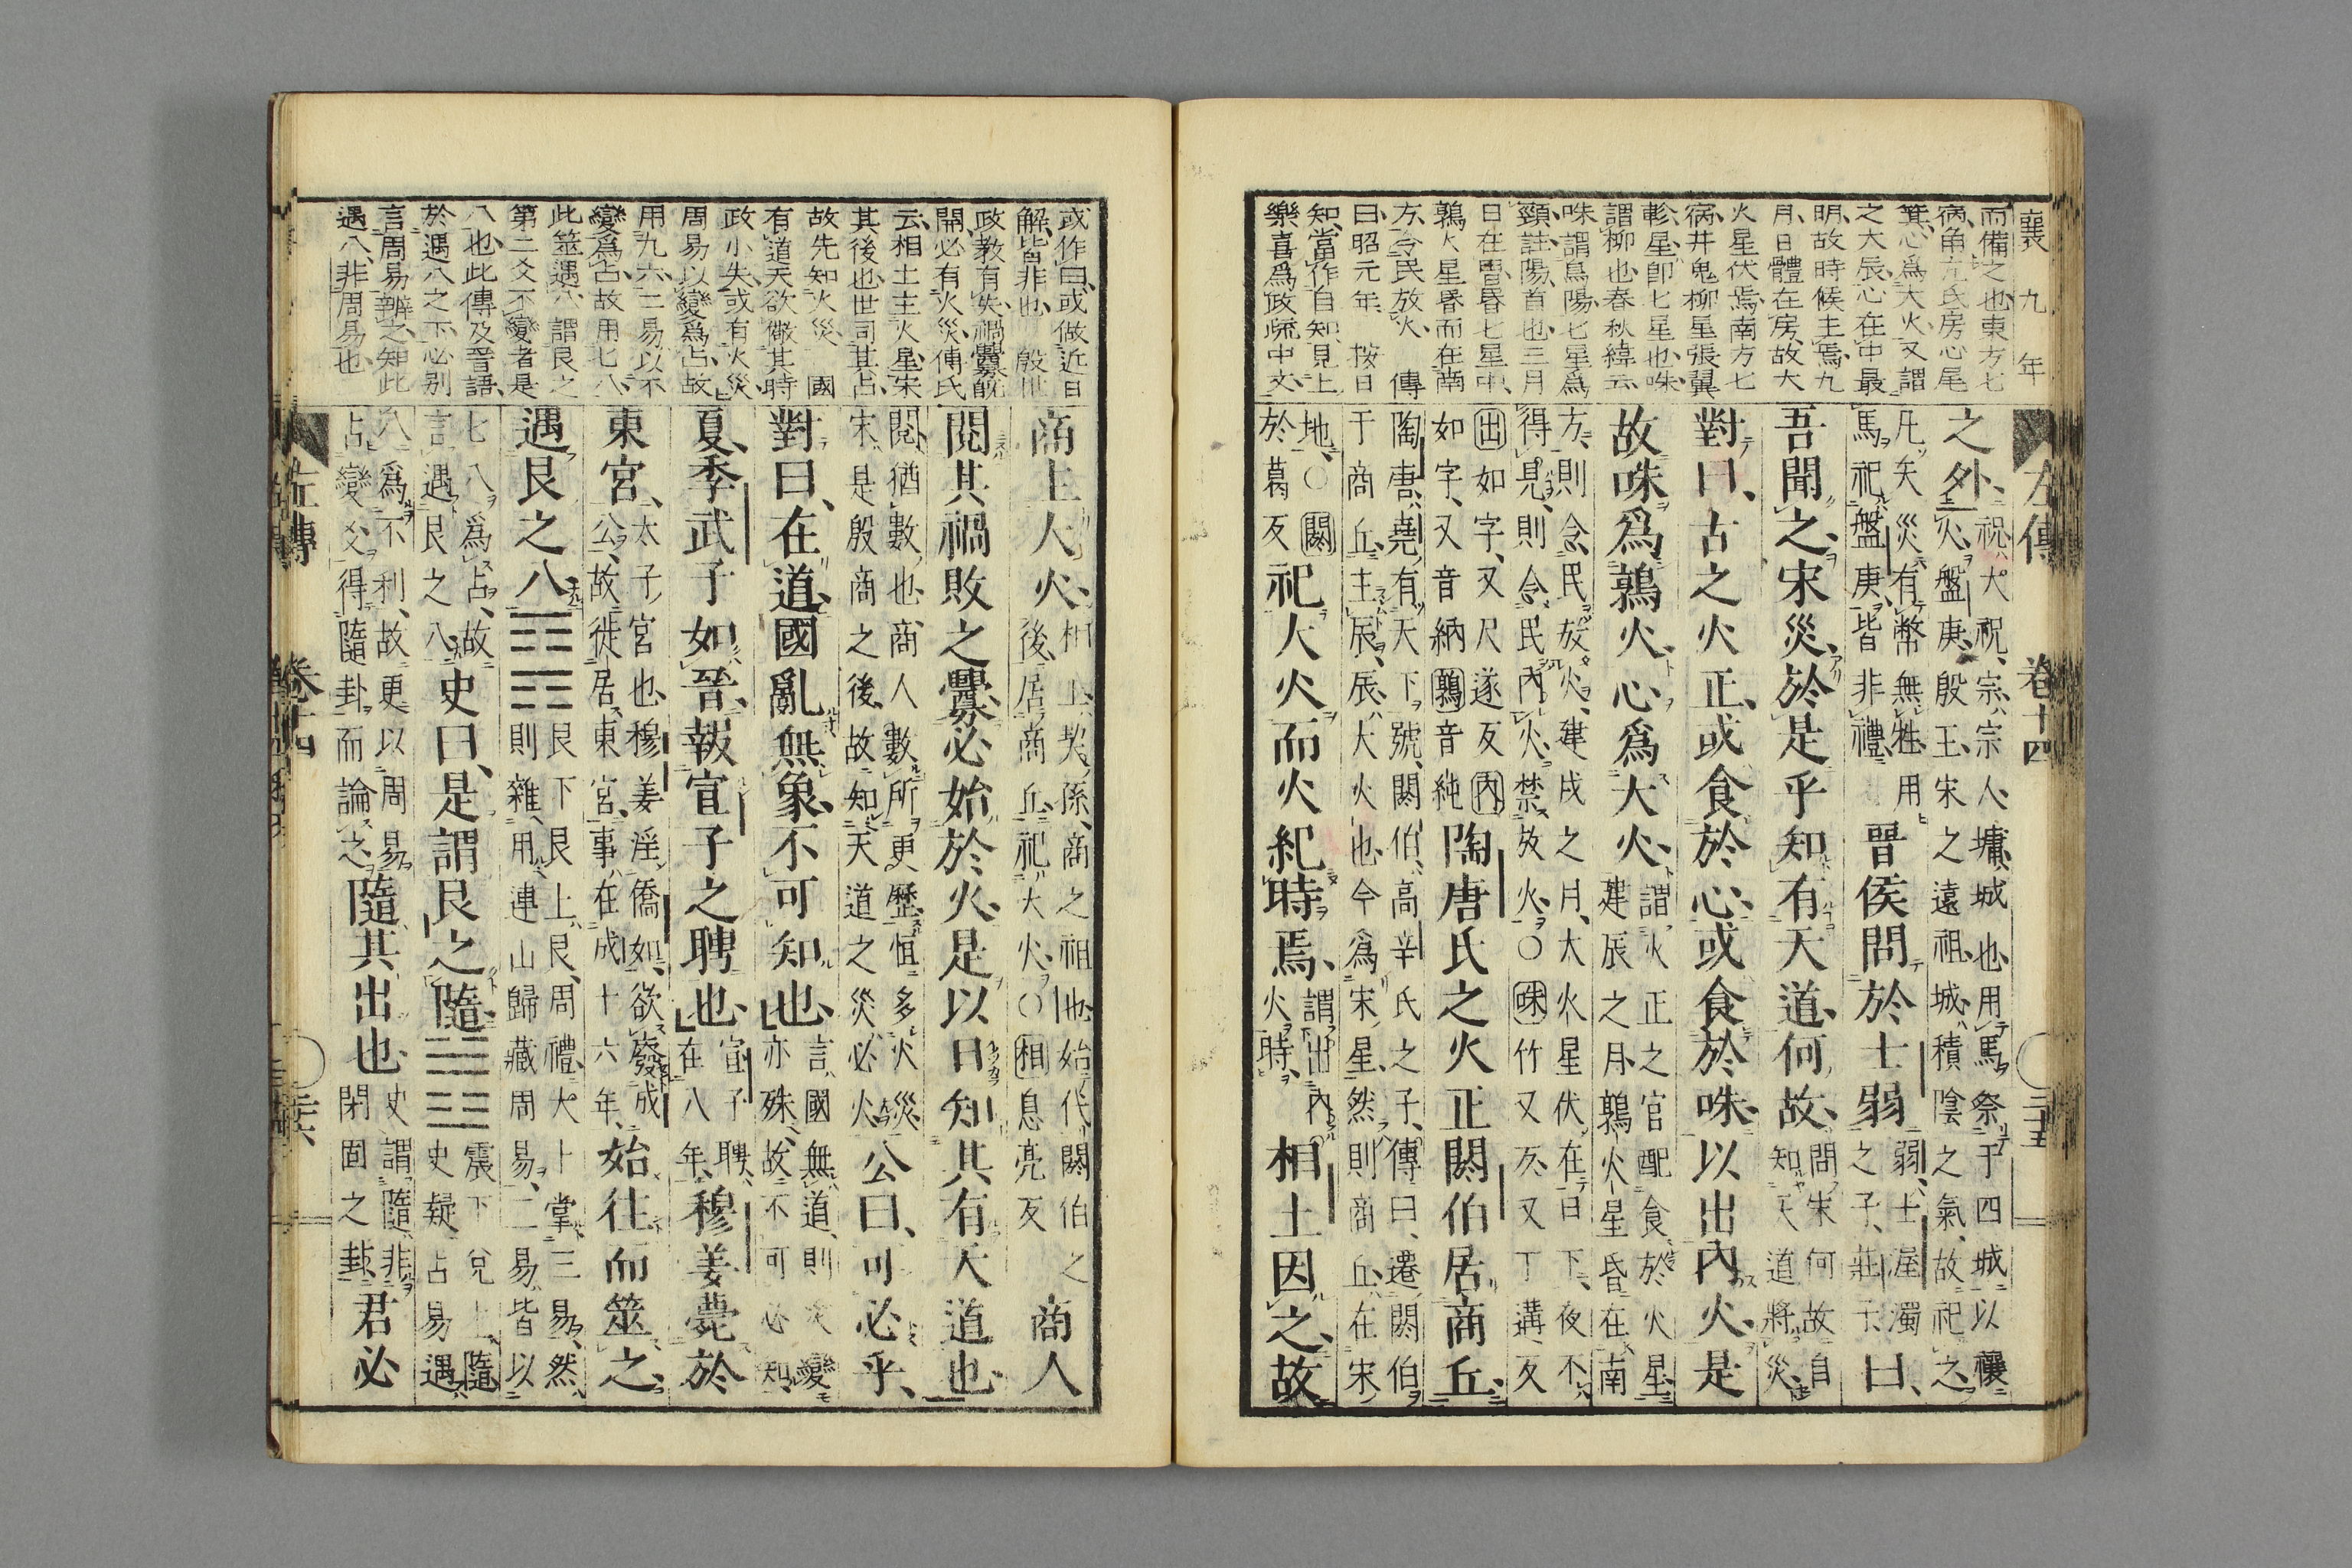 襄九年
左傳 卷十四
而備之也東方七
病角亢氐房心尾
箕心爲大火又謂
之大辰心在中最
明故時候主焉九
月日體在房故大
火星伏焉南方七
宿井鬼柳星張翼
軫星卽七星也咮
謂柳也春秋緯云
咮謂鳥陽七星爲
頸註陽首也三月
日在胃昏七星中
鶉火星昏而在南
方令民放火 傳
曰昭元年 按日
知當作自知見上
樂喜爲政疏中文
之外祝大祝宗宗人墉城也用馬祭于四城以禳
火盤庚殷王宋之遠祖城積陰之氣故祀之
凡天災有幣無牲用
馬祀盤庚皆非禮晉侯問於士弱弱士渥濁
之子莊子曰
吾聞之宋災於是乎知有天道何故問宋何故自
知天道將災
對曰古之火正或食於心或食於咮以出內火是
故咮爲鶉火心爲大火謂火正之官配食於火星
建辰之月鶉火星昏在南
方則令民放火建戌之月大火星伏在日下夜不
得見則令民內火禁放火〇咮竹又反又丁遘反
出如字又尺遂反內
如字又音納鶉音純陶唐氏之火正閼伯居商丘
陶唐堯有天下號閼伯高辛氏之子傳曰遷閼伯
于商丘主辰辰大火也今爲宋星然則商丘在宋
地〇閼
於葛反祀大火而火紀時焉謂出內
火時相土因之故
或作曰或做近日
解皆非也 殷世
政教有失禍釁旣
開必有火災傳氏
云相土主火星宋
其後也世司其占
故先知火災 國
有道天欲儆其時
政小失或有火災
周易以變爲占故
用九六二易以不
變爲占故用七八
此筮遇八謂艮之
第二爻不變者是
八也此傳及晉語
於遇八之下必别
言周易辨之知此
遇八非周易也
商主大火相土契孫商之祖也始代閼伯之
後居商丘祀大火〇相息亮反商人
閱其禍敗之釁必始於火是以日知其有天道也
閱猶數也商人數所更歷恒多火災
宋是殷商之後故知天道之災必火公曰可必乎
對曰在道國亂無象不可知也言國無道則災變
亦殊故不可必知
夏季武子如晉報宣子之聘也宣子聘
在八年穆姜薨於
東宮太子宮也穆姜淫僑如欲廢成
公故徙居東宮事在成十六年始往而筮之
遇艮之八艮下艮上艮周禮大卜掌三易然
則雜用連山歸藏周易二易皆以
七八爲占故
言遇艮之八史曰是謂艮之隨震下兌上隨
史疑占易遇
八爲不利故更以周易
占變爻得隨卦而論之隨其出也史謂隨非
閉固之卦君必
左傳 卷十四